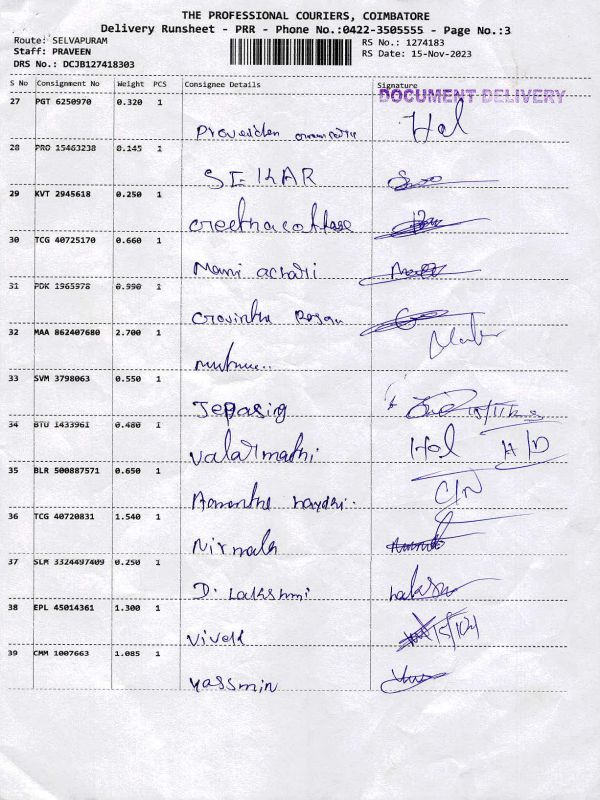 THE PROFESSIONAL COURIERS, COIMBATORE
Delivery Runsheet - PRR - Phone No.:0422-3505555 - Page No.:3
Route: SELVAPURAM
Staff: PRAVEEN
DRS No.: DCJB127418303
RS No.: 1274183
RS Date: 15-Nov-2023
S No Consignment No Weight PCS Consignee Details Signature
DOCUMENT DELIVERY
27 PGT 6250970 0.320 1
Hol
28 PRO 15463238 0.145 1
SEKAR
29 KVT 2945618 0.250 1
30 TCG 40725170 0.660 1
Mani achari
31 PDK 1965978 0.990 1
32 MAA 862407680 2.700 1
33 SVM 3798063 0.550 1
Jepasing
34 BTU 1433961 0.480 1
Valarmathi Hol H/D
35 BLR 500887571 0.650 1
C/N
36 TCG 40720831 1.540 1
Nirmala
37 SLM 3324497409 0.250 1
D. Lakshmi
38 EPL 45014361 1.300 1
Vivek
39 CMM 1007663 1.085 1
yassmin